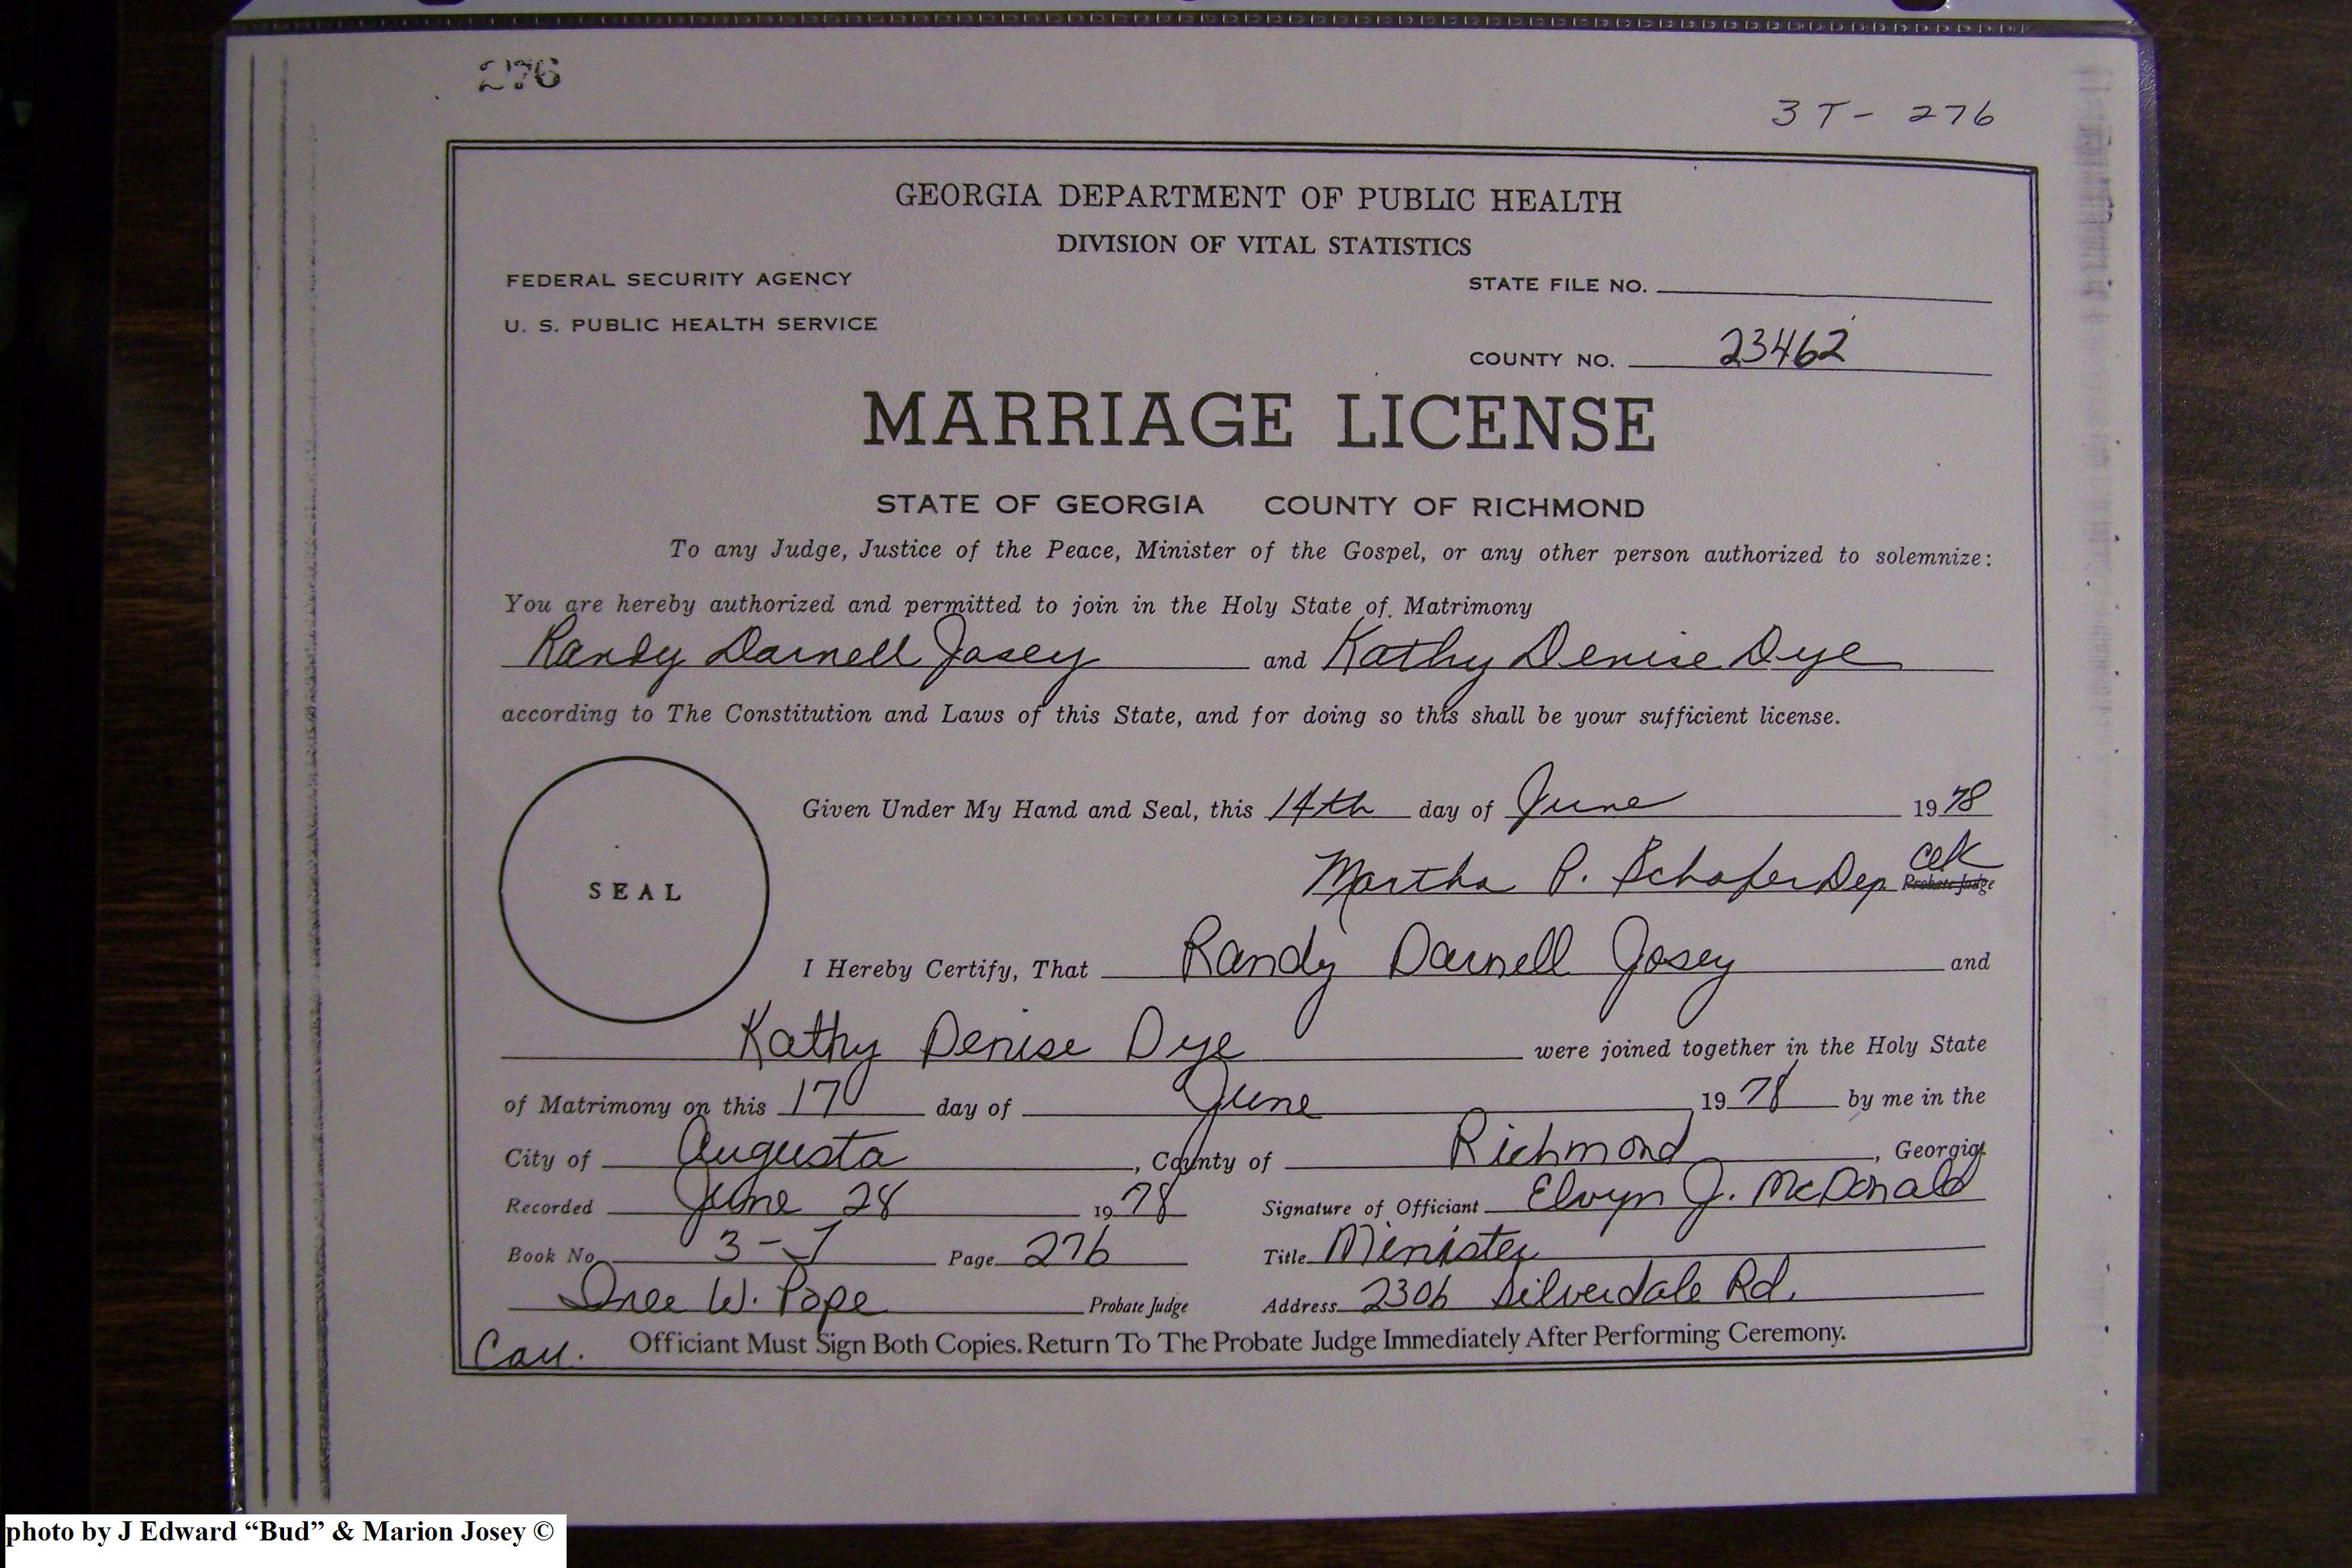 276
3T- 276
GEORGIA DEPARTMENT OF PUBLIC HEALTH
DIVISION OF VITAL STATISTICS
FEDERAL SECURITY AGENCY
STATE FILE NO.
U. S. PUBLIC HEALTH SERVICE
COUNTY NO. 23462
MARRIAGE LICENSE
STATE OF GEORGIA COUNTY OF RICHMOND
To any Judge, Justice of the Peace, Minister of the Gospel, or any other person authorized to solemnize:
You are hereby authorized and permitted to join in the Holy State of Matrimony
Randy Darnell Josey and Kathy Denise Dye
according to The Constitution and Laws of this State, and for doing so this shall be your sufficient license.
Given Under My Hand and Seal, this 14th day of June 1978
SEAL
Martha P. Schafer Dep Clk Probate Judge
I Hereby Certify, That Randy Darnell Josey and
Kathy Denise Dye were joined together in the Holy State
of Matrimony on this 17 day of June 1978 by me in the
City of Augusta, County of Richmond, Georgia.
Recorded June 28 1978 Signature of Officiant Elvyn J. McDonald
Book No. 3-T Page 276 Title Minister
W. Pope Probate Judge Address 2306 Silverdale Rd.
Officiant Must Sign Both Copies. Return To The Probate Judge Immediately After Performing Ceremony.
photo by J Edward “Bud” & Marion Josey ©